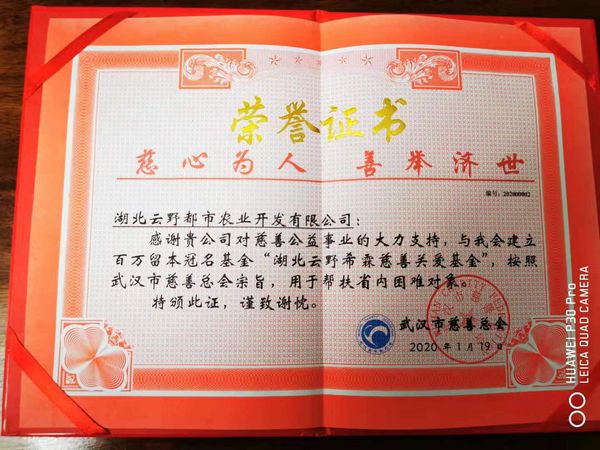 荣誉证书
慈心为人 善举济世
编号：202000002
湖北云野都市农业开发有限公司：
感谢贵公司对慈善公益事业的大力支持，与我会建立
百万留本冠名基金“湖北云野希霖慈善关爱基金”，按照
武汉市慈善总会宗旨，用于帮扶省内困难对象。
特颁此证，谨致谢忱。
武汉市慈善总会
2020年1月19日
HUAWEI P30 Pro
LEICA QUAD CAMERA